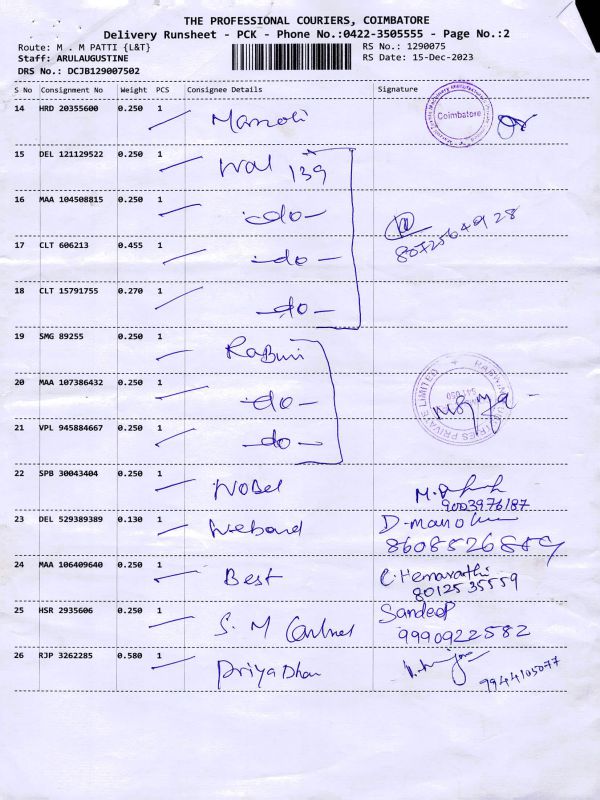 THE PROFESSIONAL COURIERS, COIMBATORE
Delivery Runsheet - PCK - Phone No.:0422-3505555 - Page No.:2
Route: M . M PATTI {L&T} RS No.: 1290075
Staff: ARULAUGUSTINE RS Date: 15-Dec-2023
DRS No.: DCJB129007502
S No Consignment No Weight PCS Consignee Details Signature
14 HRD 20355600 0.250 1 Coimbatore
15 DEL 121129522 0.250 1 139
16 MAA 104508815 0.250 1 -do-
17 CLT 606213 0.455 1 -do-
18 CLT 15791755 0.270 1 -do-
19 SMG 89255 0.250 1
20 MAA 107386432 0.250 1 -do-
21 VPL 945884667 0.250 1 -do-
22 SPB 30043404 0.250 1 Nobel
9003976187
23 DEL 529389389 0.130 1
24 MAA 106409640 0.250 1 Best C. Hemavathi
8012535559
25 HSR 2935606 0.250 1 S. M Sandeep
9990922582
26 RJP 3262285 0.580 1 Priya Dhan
9944105077